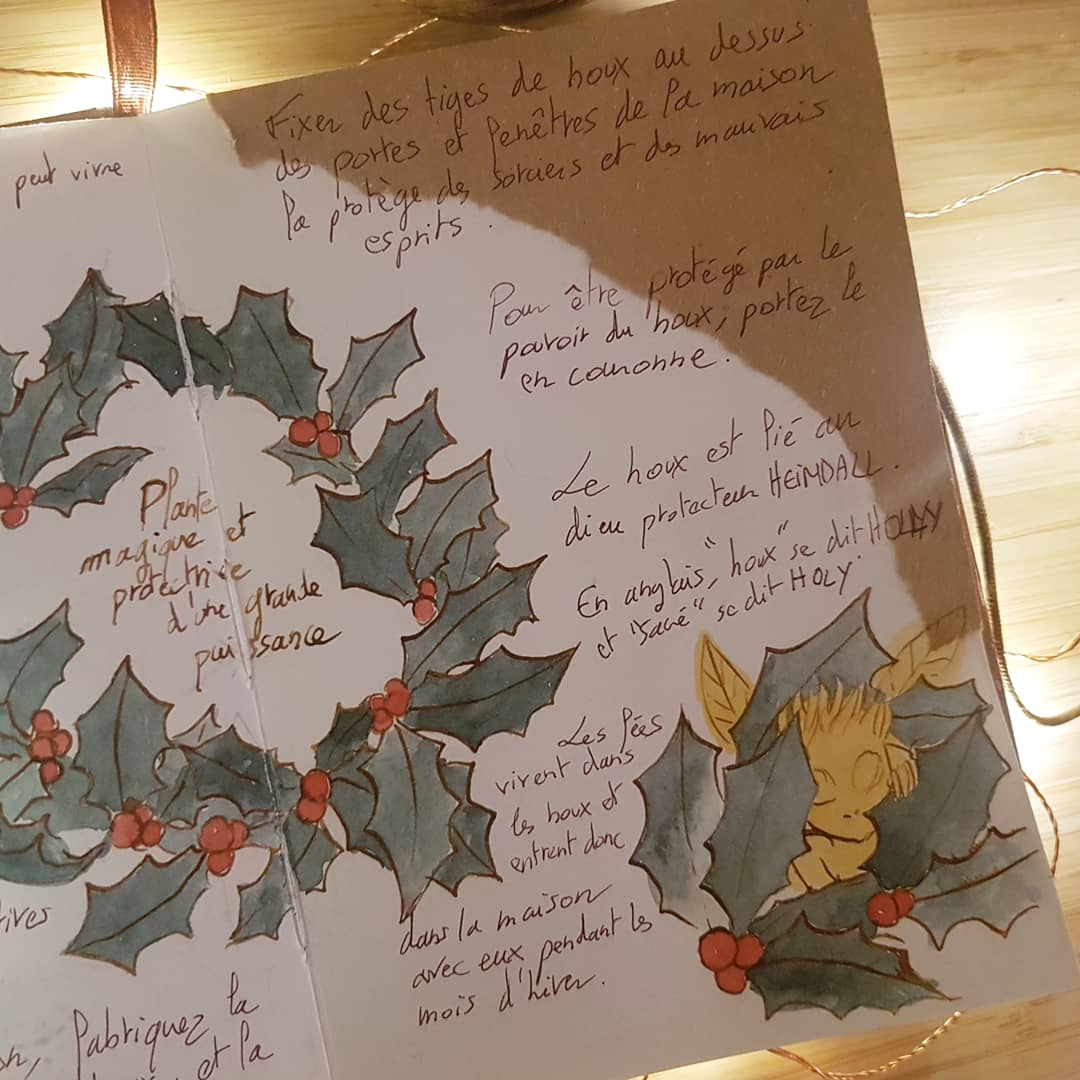 peut vivre
Plante
magique et
protectrice
d'une grande
puissance
ives
Fabriquez la
et la
Fixer des tiges de houx au dessus
des portes et fenêtres de la maison
la protège des sorciers et des mauvais
esprits.
Pour être protégé par le
pouvoir du houx, portez le
en couronne.
Le houx est lié au
dieu protecteur HEIMDALL.
En anglais, "houx" se dit HOLLY
et "sacré" se dit HOLY.
Les fées
vivent dans
les houx et
entrent donc
dans la maison
avec eux pendant les
mois d'hiver.